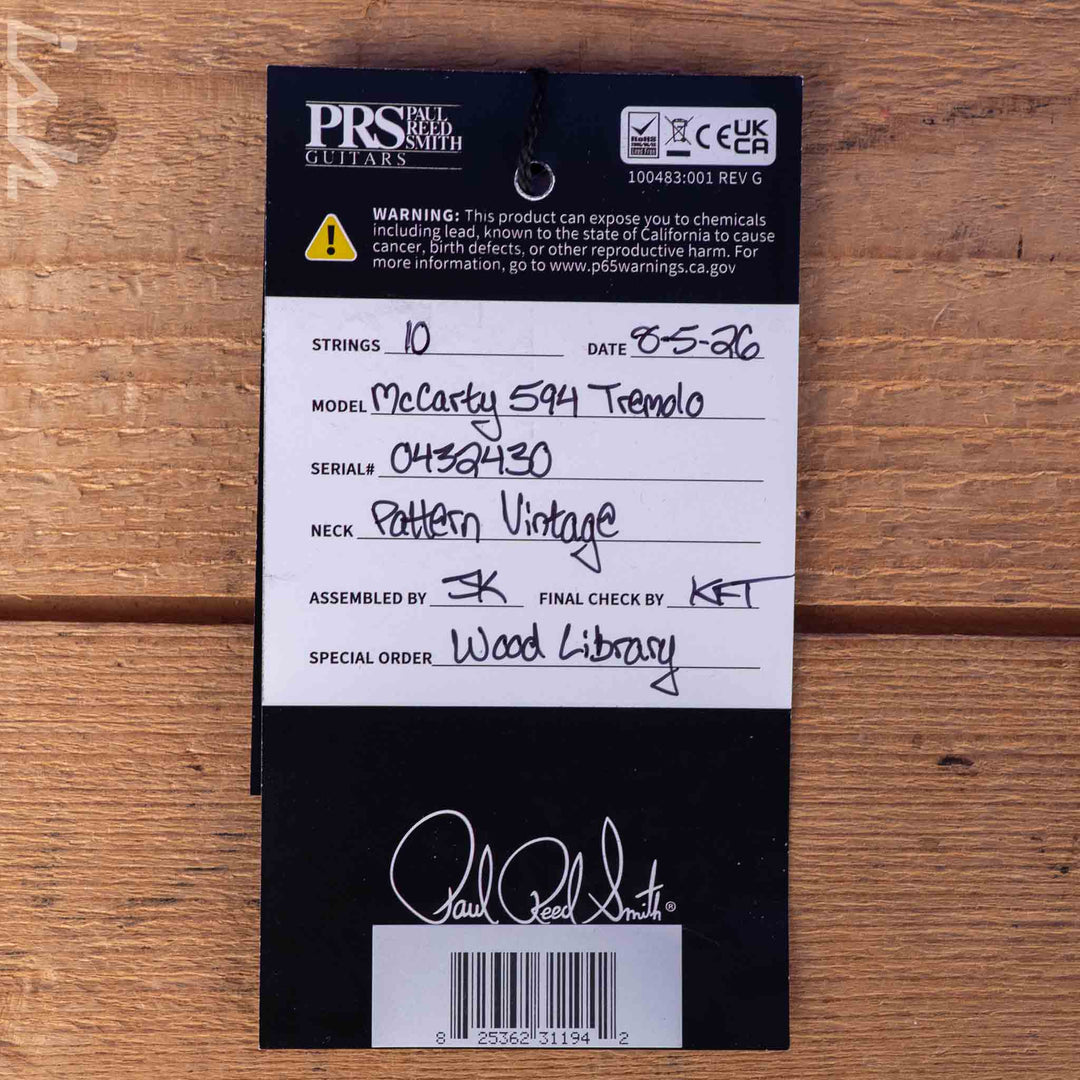 PRS PAUL REED SMITH
GUITARS
RoHS
CE UK CA
100483:001 REV G
WARNING: This product can expose you to chemicals
including lead, known to the state of California to cause
cancer, birth defects, or other reproductive harm. For
more information, go to www.p65warnings.ca.gov
STRINGS 10 DATE 8-5-26
MODEL McCarty 594 Tremolo
SERIAL# 0432430
NECK Pattern Vintage
ASSEMBLED BY JK FINAL CHECK BY KFT
SPECIAL ORDER Wood Library
Paul Reed Smith®
8 25362 31194 2